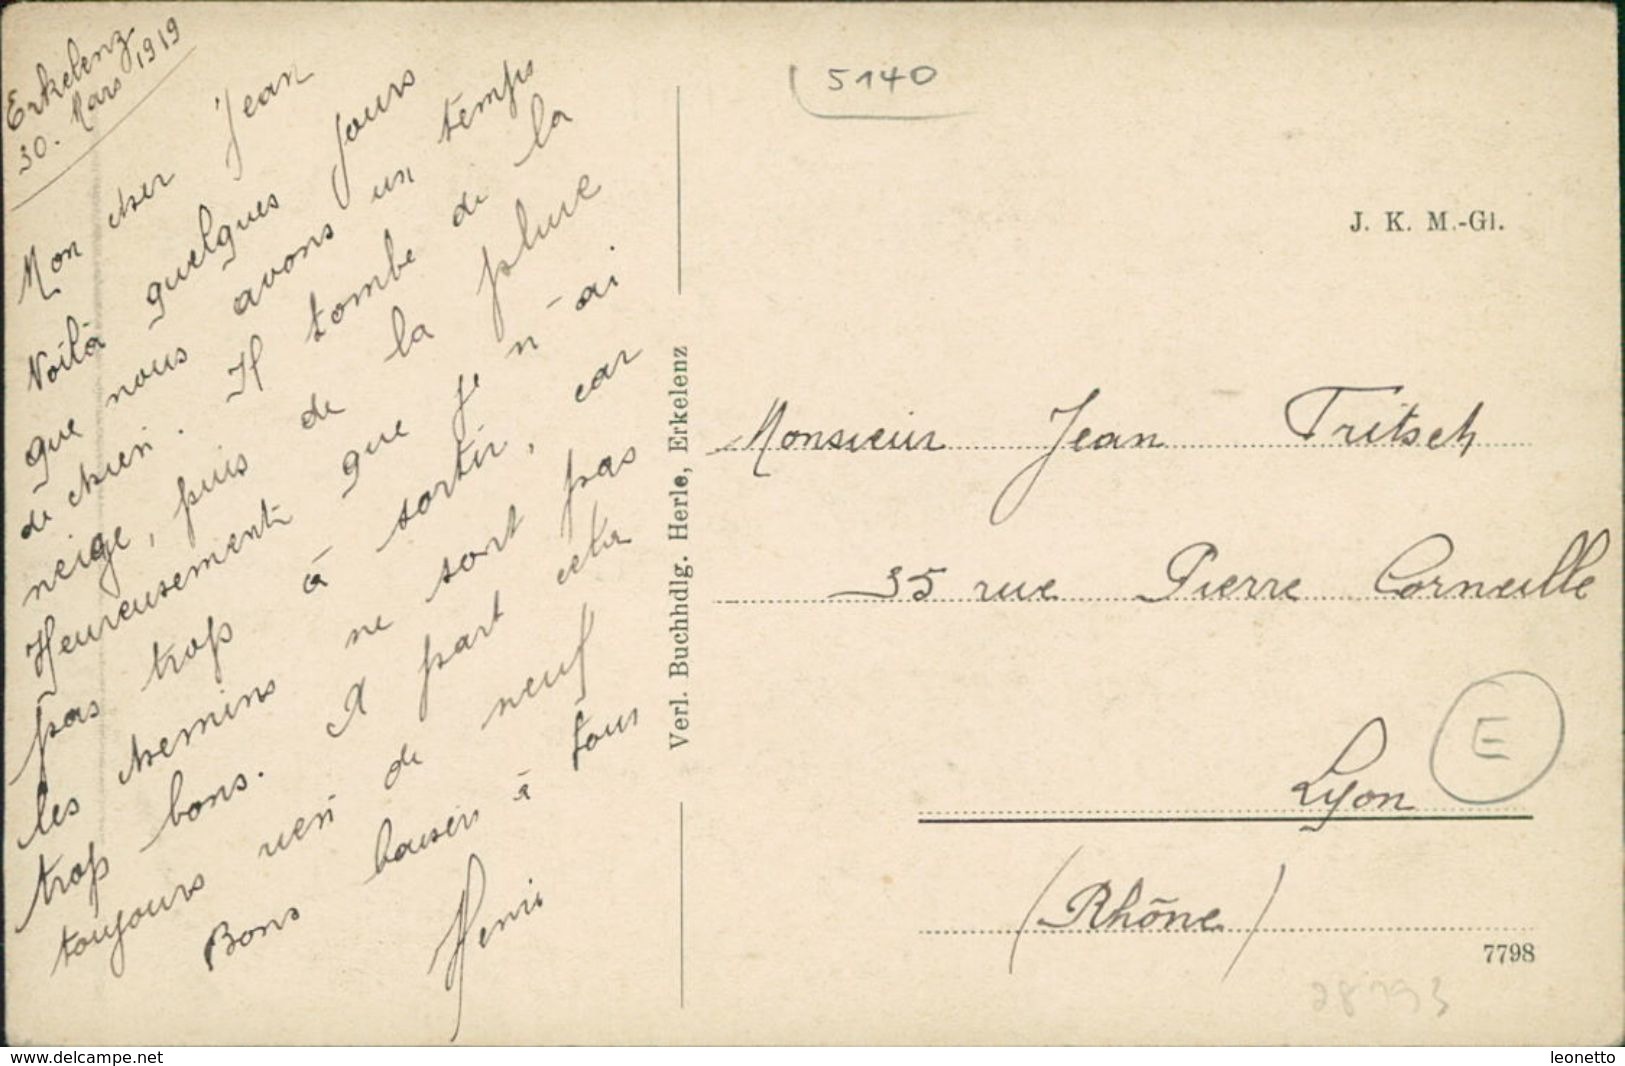 Erkelenz
30. Mars 1919
Mon cher Jean
Voilà quelques jours
que nous avons un temps
de chien. Il tombe de la
neige, puis de la pluie
Heureusement que je n'ai
pas trop à sortir, car
les chemins ne sont pas
trop bons. A part cela
toujours rien de neuf
Bons baisers à tous
Henri
Verl. Buchhdlg. Herle, Erkelenz
5140
J. K. M.-Gl.
Monsieur Jean Tritsch
35 rue Pierre Corneille
Lyon
E
(Rhône)
7798
28793
www.delcampe.net
leonetto